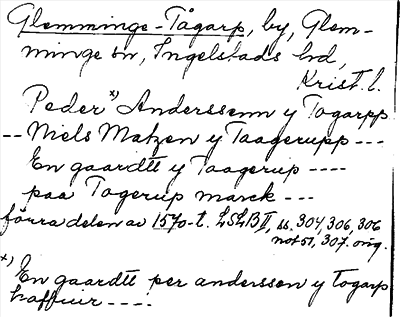 Glemminge-Tågarp, by, Glem-
minge sn, Ingelstads hd,
Krist. l.
Peder x) Anderssenn y Togarpp
-- Niels Matzen y Taagerupp ---
En gaardtt y Taagerup ----
paa Togerup marck ---
förra delen av 1570-t. LSLB II, ss. 304, 306, 306
not 51, 307. orig.
x) En gaardtt per anderssen y togarp
haffuir ----